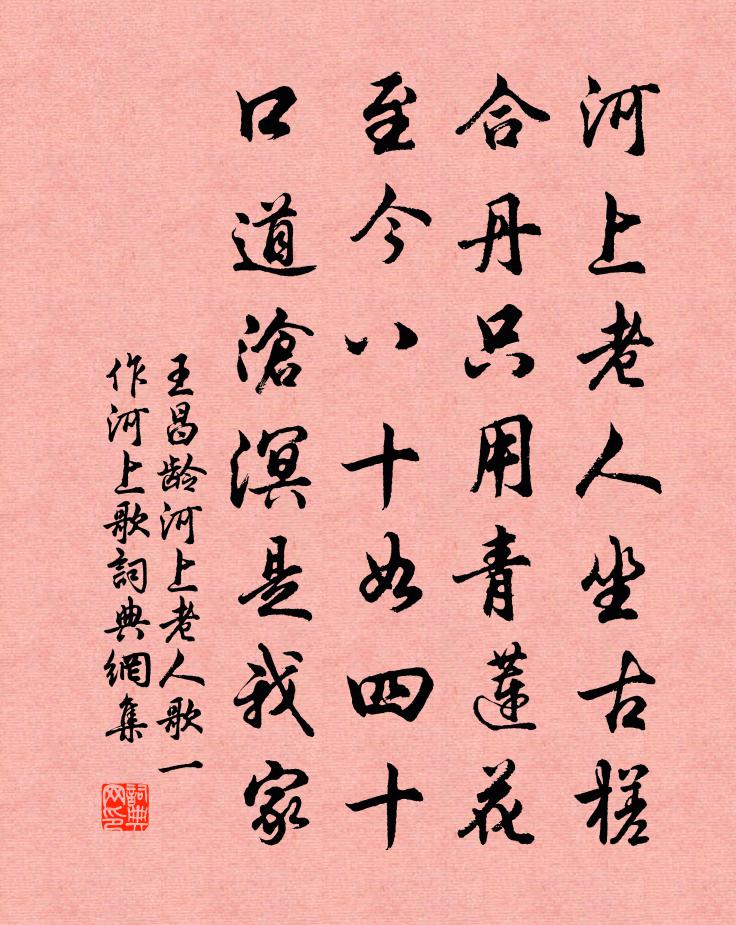 河上老人坐古槎
合丹只用青蓮花
至今八十如四十
口道滄溟是我家
王昌龄河上老人歌一
作河上歌詞典網集
詞典網印